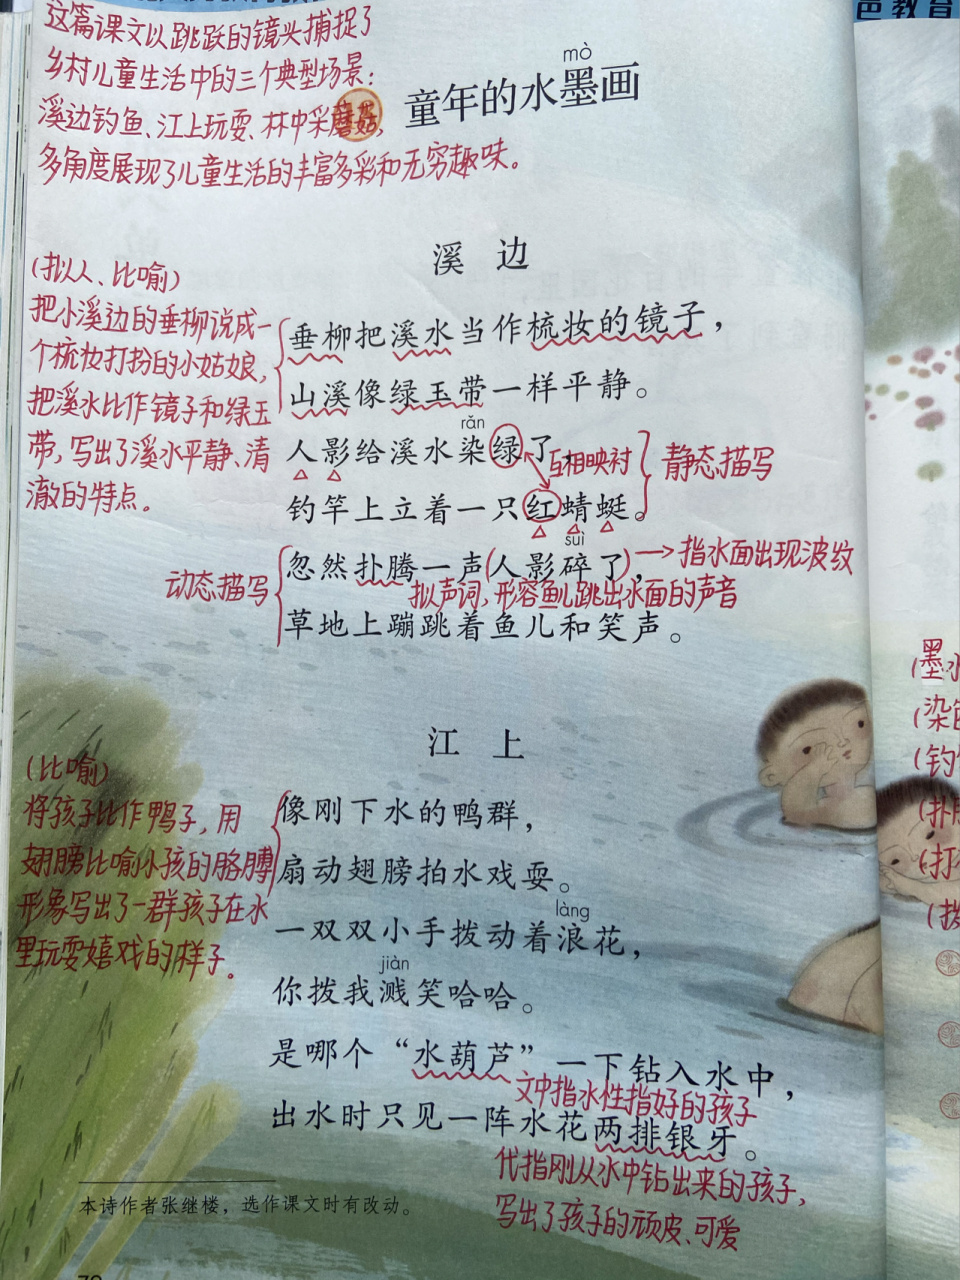 色教育
这篇课文以跳跃的镜头捕捉了
乡村儿童生活中的三个典型场景：
溪边钓鱼、江上玩耍、林中采蘑菇，
多角度展现了儿童生活的丰富多彩和无穷趣味。
mò
童年的水墨画
溪 边
(拟人、比喻)
把小溪边的垂柳说成一
个梳妆打扮的小姑娘，
把溪水比作镜子和绿玉
带，写出了溪水平静、清
澈的特点。
垂柳把溪水当作梳妆的镜子，
山溪像绿玉带一样平静。
rǎn
人影给溪水染绿了，
互相映衬
静态描写
钓竿上立着一只红蜻蜓。
suì
忽然扑腾一声(人影碎了)，
指水面出现波纹
动态描写
拟声词，形容鱼儿跳出水面的声音
草地上蹦跳着鱼儿和笑声。
江 上
(比喻)
将孩子比作鸭子，用
翅膀比喻小孩的胳膊
形象写出了一群孩子在水
里玩耍嬉戏的样子。
像刚下水的鸭群，
扇动翅膀拍水戏耍。
làng
一双双小手拨动着浪花，
jiàn
你拨我溅笑哈哈。
是哪个“水葫芦”一下钻入水中，
文中指水性指好的孩子
出水时只见一阵水花两排银牙。
代指刚从水中钻出来的孩子，
写出了孩子的顽皮、可爱
本诗作者张继楼，选作课文时有改动。
(墨水
(染色
(钓
(扑
(打
(拨